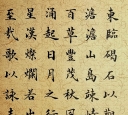 東臨碣石以觀
澹澹山島竦峙
百草豐茂秋風
湧起日月之行
星漢燦爛若出
至哉歌以詠志